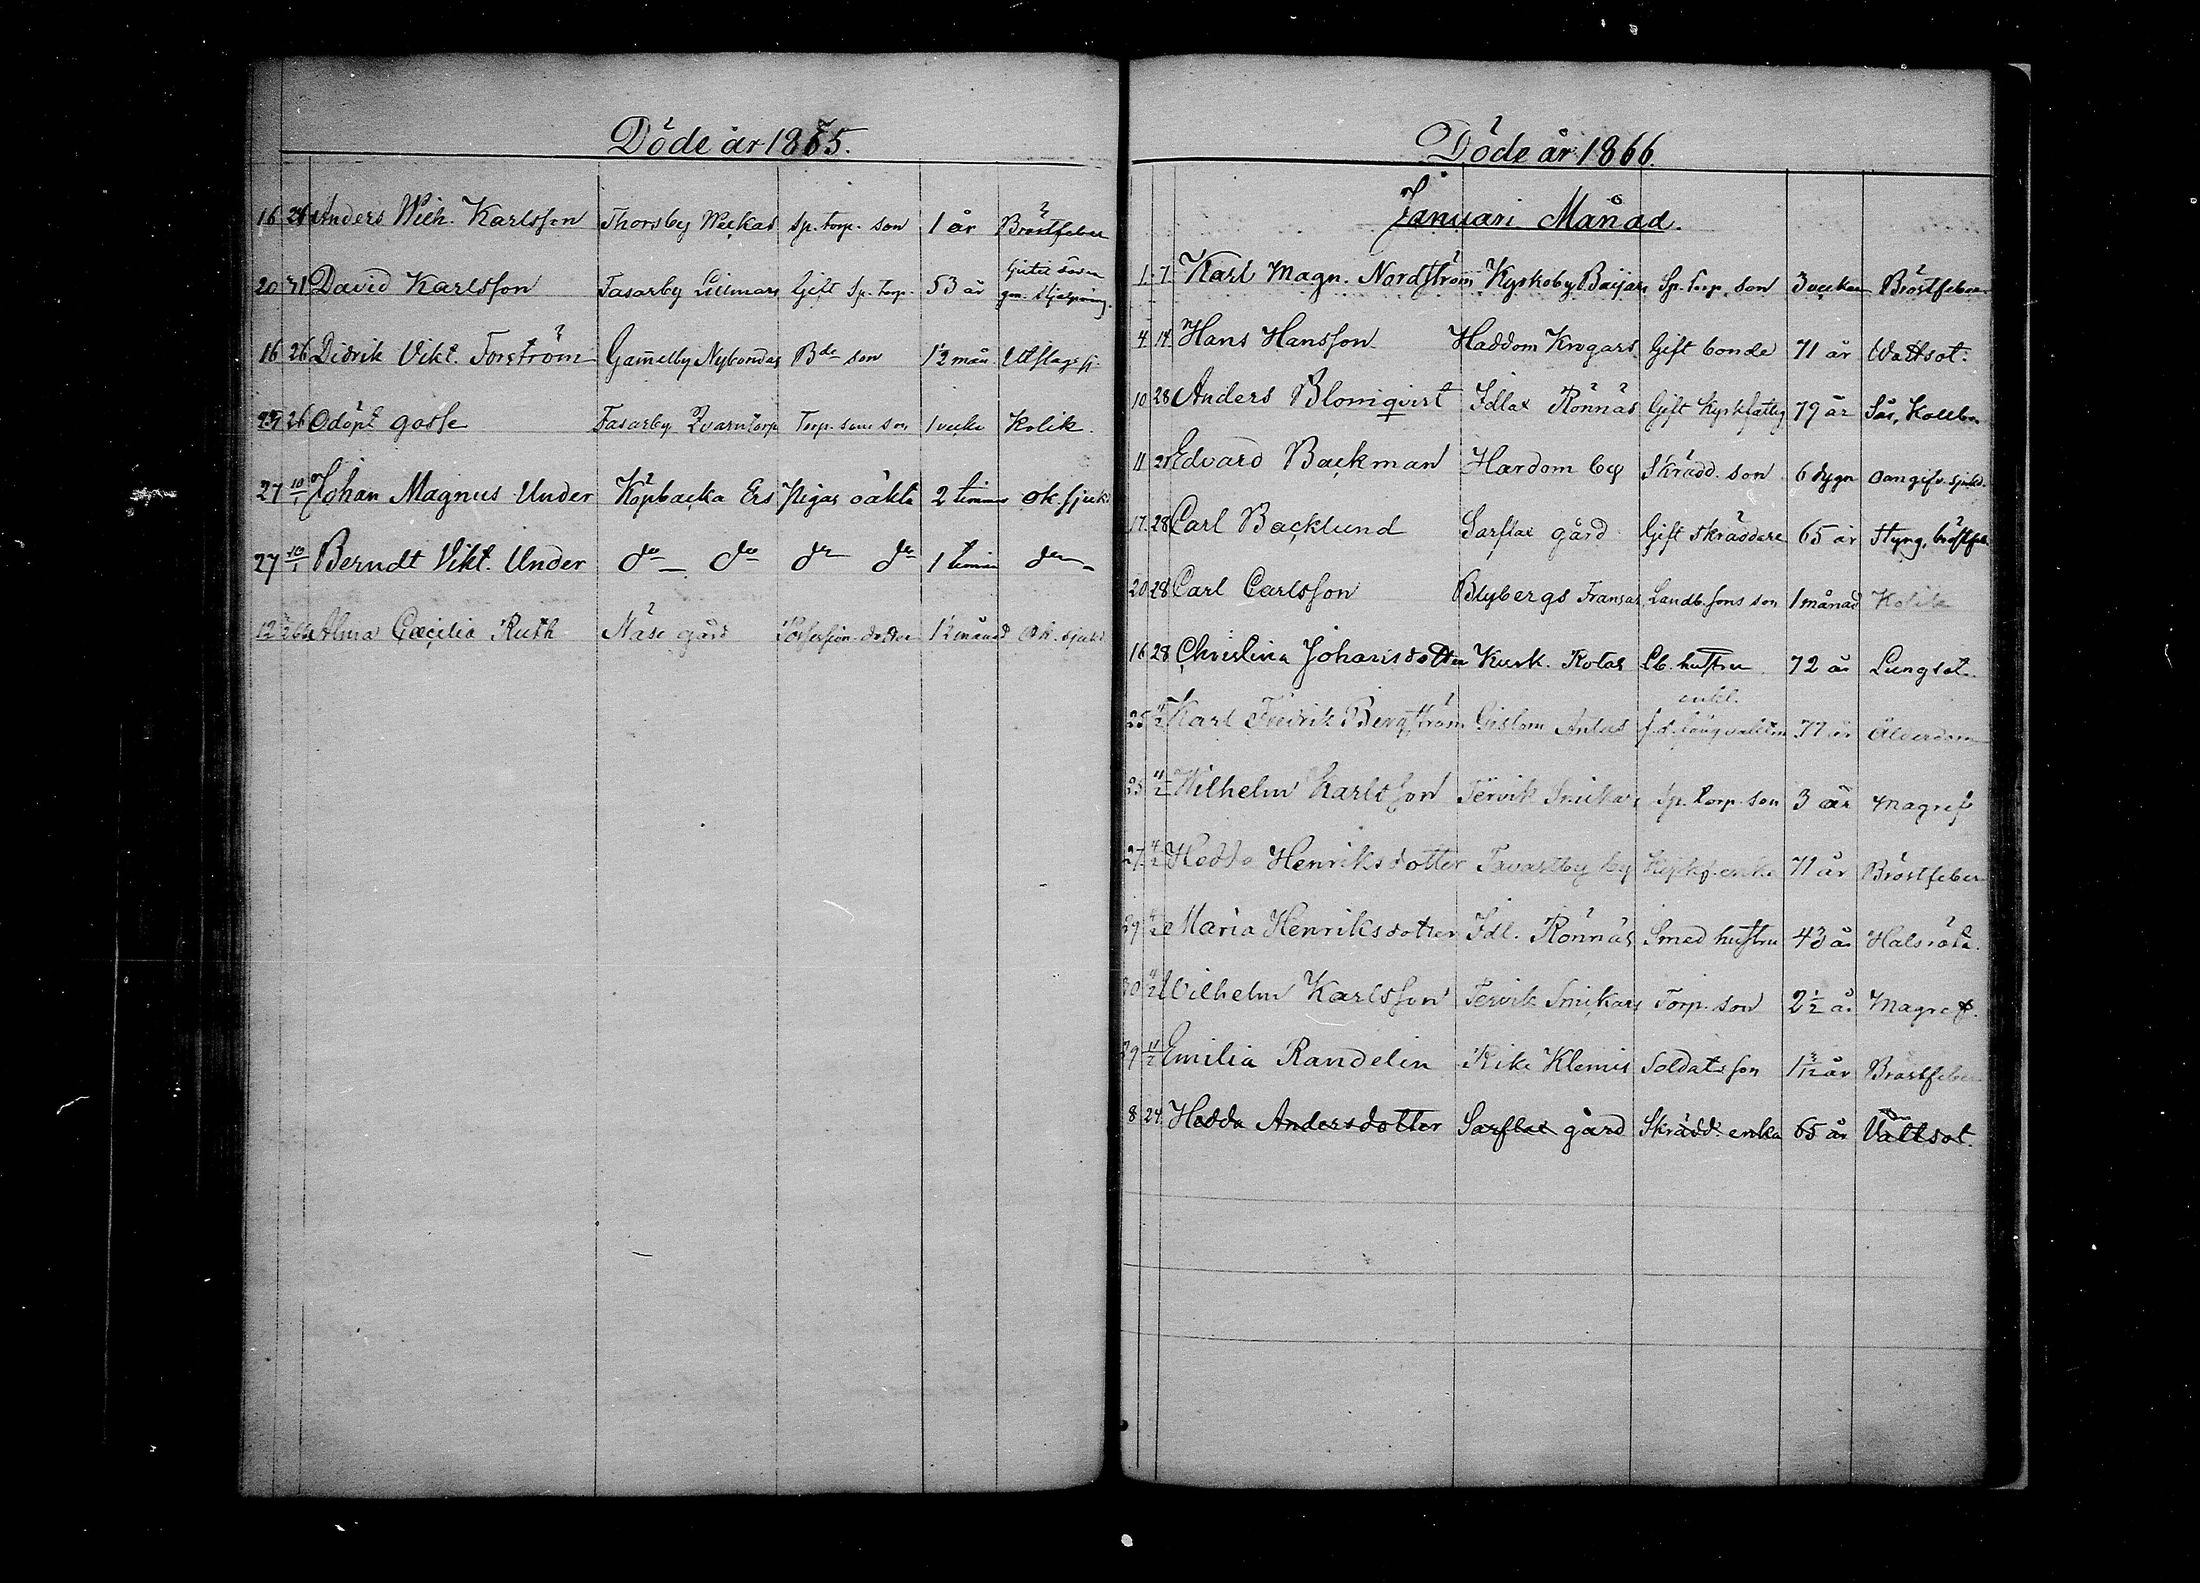 Döde år 1865.
16 26 Anders Wilh. Karlsson Thorsby Weckas Sp. torp. son 1 år Bröstfeber
20 31 David Karlsson Tasarby Lillmars Gift Sp. torp. 53 år
16 26 Didrik Vikt. Forström Gammelby Nybondas Bde son 1½ mån Utslagssj.
26 Odöpt gosse Tasarby Qvarntorp Torp. sons son 1 vecka Kolik.
27 10/1 Johan Magnus Under Köpbacka Ers Pigas oäkta 2 timmar ok. sjukd.
27 10/1 Berndt Vikt. Under do do do do 1 timma do
12 Alma Cæcilia Ruth Näse gård dotter 1½ månad Ok. sjukd.
Döde år 1866.
Januari Månad.
1 7 Karl Magn. Nordström Kyrkoby Baijars Sp. torp. son 3 veckor Bröstfeber
4 14 Hans Hansson Haddom Krogars Gift bonde 71 år Wattsot.
10 28 Anders Blomqvist Idlax Rönnäs Gift Kyrkfattig 79 år Sår, Kallbr.
11 21 Edvard Backman Hardom by Skrädd. son 6 dygn oangifv. sjukd.
17 28 Carl Backlund Sarflax gård Gift skräddare 65 år Styng, bröstfeb.
20 28 Carl Carlsson Blybergs Fransas Landb. sons son 1 månad Kolik
16 28 Christina Johansdotter Kusk. Rotas Lb. hustru 72 år Lungsot.
enkl.
25 4/2 Karl Fredrik Bergström Gislom Antas 77 år Ålderdom
25 4/2 Wilhelm Karlsson Tervik Smickars Sp. torp. son 3 år Magref
27 4/2 Hedda Henriksdotter Tavastby by Kyrkf. enka 71 år Bröstfeber
29 4/2 Maria Henriksdotter Idl. Rönnäs Smed hustru 43 år Halsröta.
30 4/2 Wilhelm Karlsson Tervik Smickars Torp. son 2½ år Magref.
29 11/2 Emilia Randelin Rike Klemis Soldats son 1 3/12 år Bröstfeber
8 24 Hedda Andersdotter Sarflax gård Skrädd. enka 65 år Vattsot.